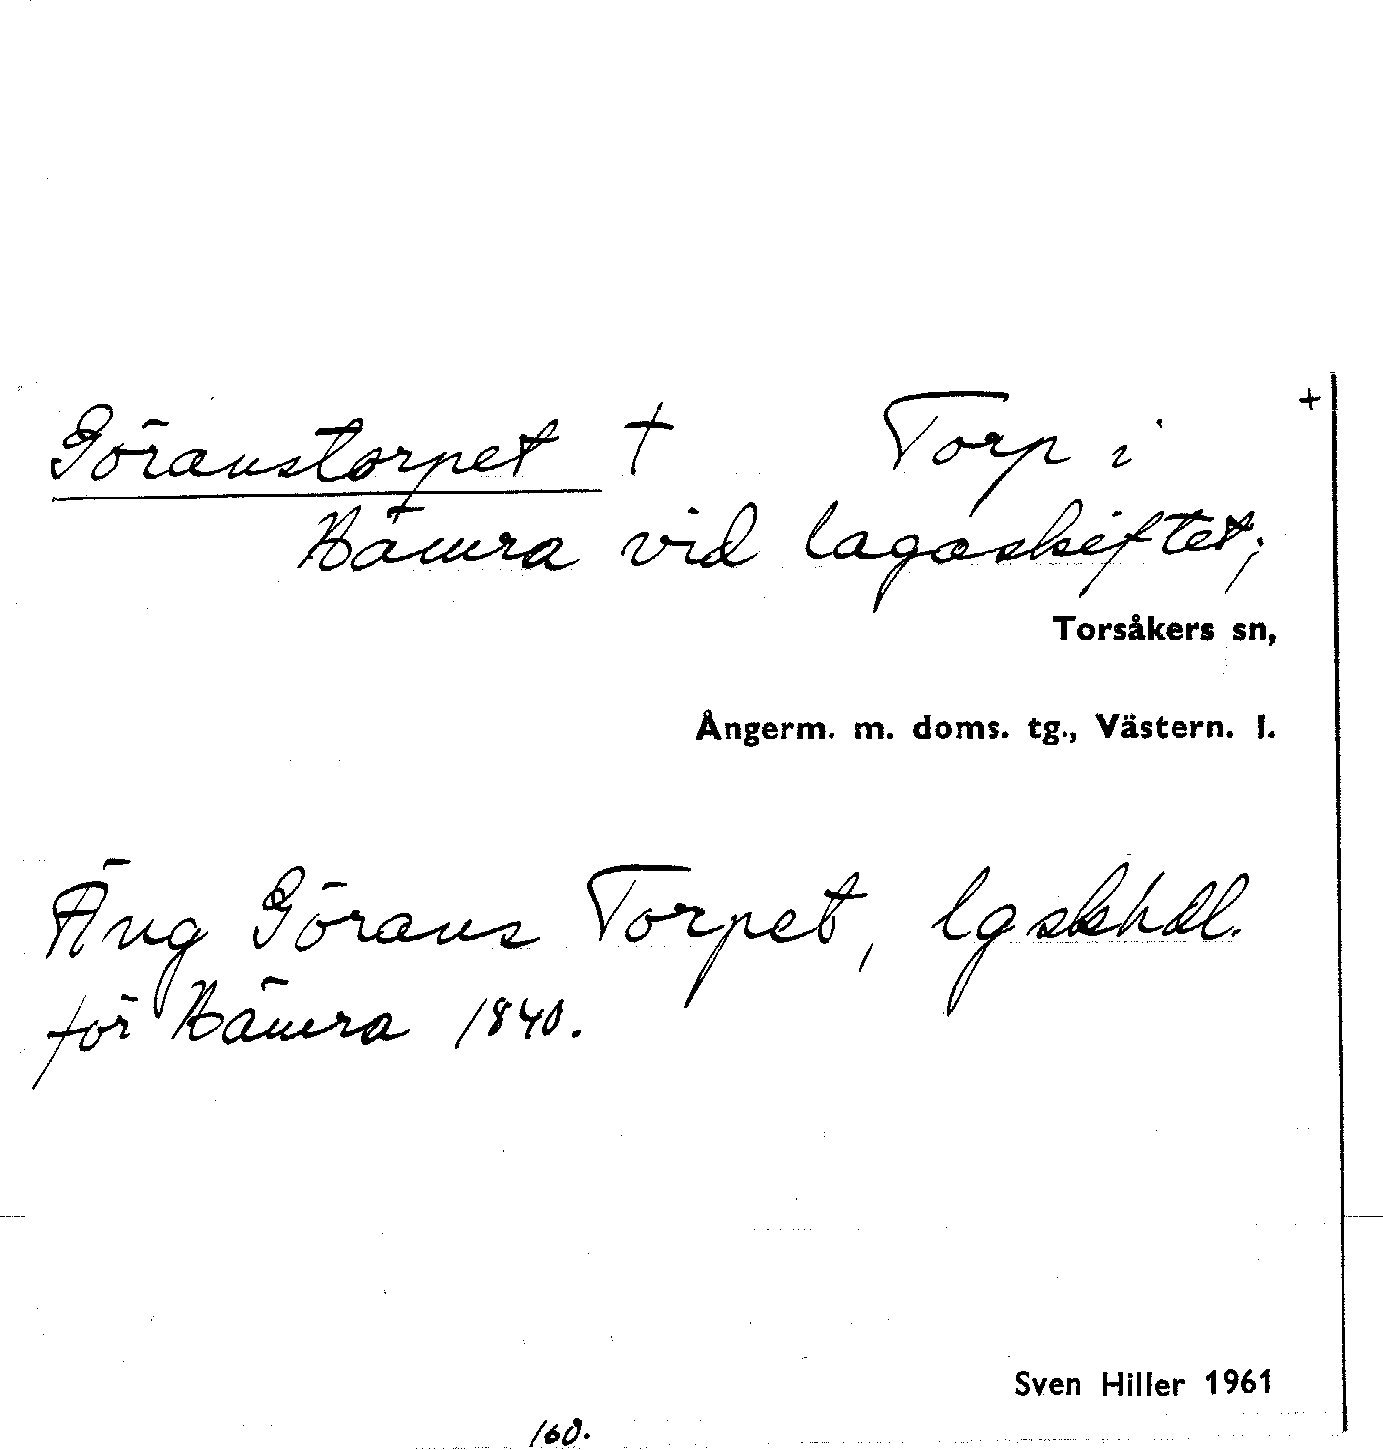 Göranstorpet † Torp i +
Hämra vid lagaskiftet;
Torsåkers sn,
Ångerm. m. doms. tg., Västern. l.
Äng Görans Torpet, lgskhdl.
för Hämra 1840.
Sven Hiller 1961
160.